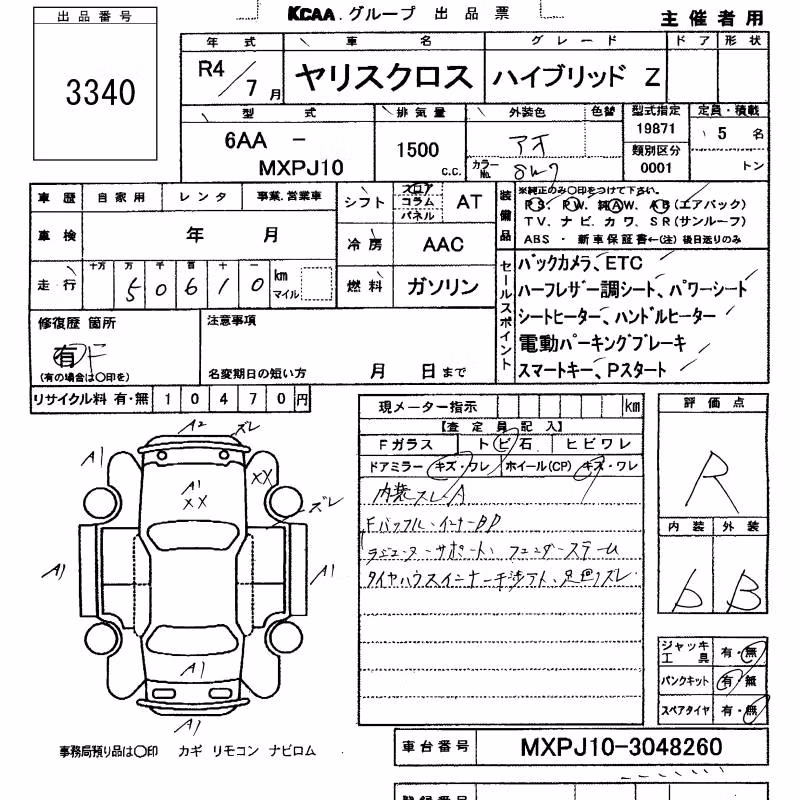 KCAA.グループ 出品票
主催者用
出品番号
3340
年式 車名 グレード ドア 形状
R4/7月 ヤリスクロス ハイブリッド Z
型式 排気量 外装色 色替 型式指定 定員・積載
6AA - MXPJ10 1500 c.c. アオ カラーNo. 8W7 19871 5名
類別区分 0001 トン
車歴 自家用 レンタ 事業、営業車
シフト フロア コラム パネル AT
車検 年 月
冷房 AAC
走行 十万 万 千 百 十 一 50610 km マイル
燃料 ガソリン
装備品 ※純正のみ○印をつけて下さい。
PS、PW、純AW、AB(エアバック)
TV、ナビ、カワ、SR(サンルーフ)
ABS・新車保証書←(注)後日送りのみ
セールスポイント
バックカメラ、ETC
ハーフレザー調シート、パワーシート
シートヒーター、ハンドルヒーター
電動パーキングブレーキ
スマートキー、Pスタート
修復歴 箇所
有 F
(有の場合は○印を)
注意事項
名変期日の短い方 月 日まで
リサイクル料 有・無 10470円
現メーター指示 km
【査定員記入】
Fガラス トビ石 ヒビワレ
ドアミラー キズ・ワレ ホイール(CP) キズ・ワレ
内装スレA
Fバッフル・インナーBP
ラジエーターサポート、フェンダーステーム
タイヤハウスインナー干渉アト、足回ズレ
評価点
R
内装 外装
b B
A2 ズレ
A1 XX
A1
XX
ズレ
A1 A1
A1
A1
ジャッキ工具 有・無
パンクキット 有・無
スペアタイヤ 有・無
事務局預り品は○印 カギ リモコン ナビロム
車台番号 MXPJ10-3048260